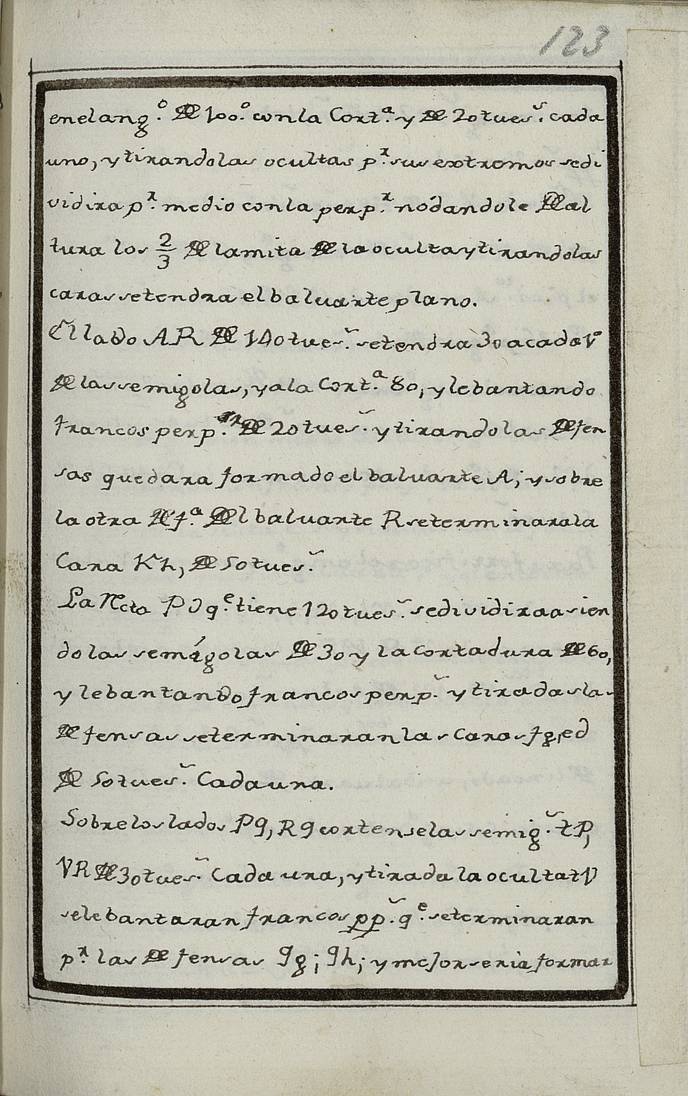 123
en el ang.º de 100.º con la Cort.ª y de 20 tues.s cada
uno, y tirando las ocultas p.r sus extremos se di
vidira p.r medio con la perp.r nódandole de al
tura los 2/3 de la mita de la oculta y tirando las
caras se tendra el baluarte plano.
El lado AR de 140 tues.s se tendra 30 a cada V.º
de las semigolas, y a la Cort.ª 80, y lebantando
francos perp.rs de 20 tues.s y tirando las defen
sas quedara formado el baluarte A; y sobre
la otra def.ª del baluarte R se terminara la
Cara Kh, de 50 tues.s
La Recta PQ q.e tiene 120 tues.s se dividira asien
do las semigolas de 30 y la cortadura de 60,
y lebantando francos perp.s y tiradas las
defensas se terminaran las Caras fg, ed
de 50 tues.s Cada una.
Sobre los lados P9, R9 cortense las semig.s tP,
VR de 30 tues.s Cada una, y tirada la oculta tV
se lebantaran francos pp.s q.e se terminaran
p.r las defensas 9g; 9h; y mejor seria formar